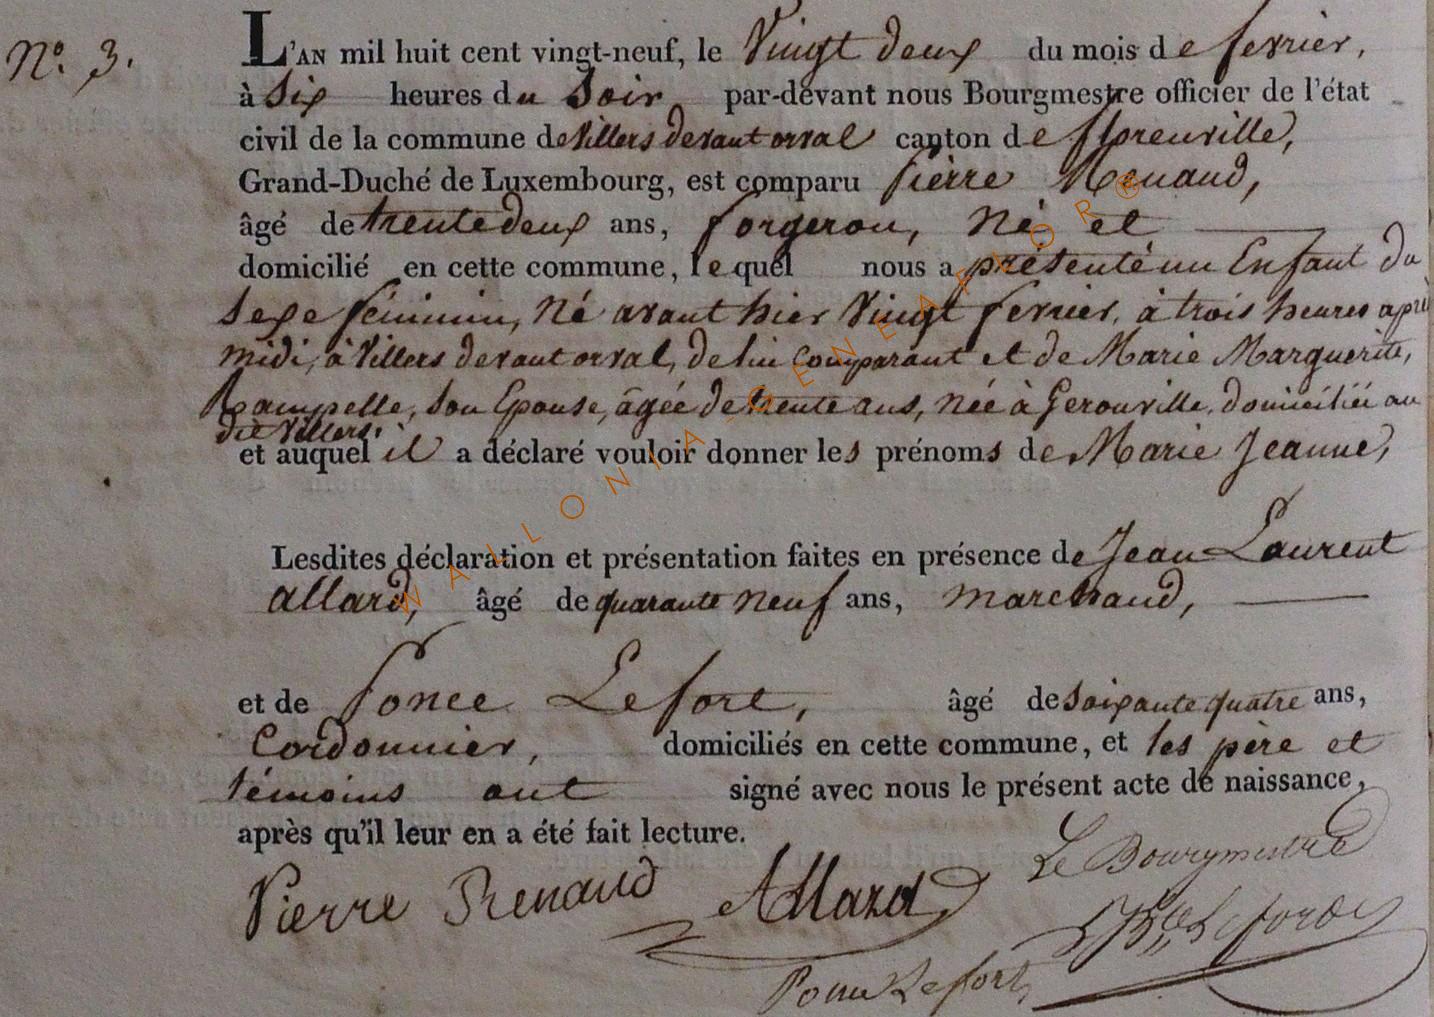 N.o 3.
L'AN mil huit cent vingt-neuf, le Vingt deux du mois de fevrier,
à Six heures du Soir par-devant nous Bourgmestre officier de l'état
civil de la commune de Villers devant orval canton de florenville,
Grand-Duché de Luxembourg, est comparu Pierre Renaud,
âgé de trente deux ans, forgeron, Né et
domicilié en cette commune, lequel nous a présenté un Enfant du
Sexe féminin, Né avant hier Vingt fevrier, à trois heures après
midi, à Villers devant orval, de lui Comparant et de Marie Marguerite,
Rampelle, Son Epouse, âgée de trente ans, née à Gerouville, domiciliée au
dit Villers,
et auquel il a déclaré vouloir donner les prénoms de Marie Jeanne,
Lesdites déclaration et présentation faites en présence de Jean Laurent
allard, âgé de quarante neuf ans, marchand,
et de Ponce Lefort, âgé de soixante quatre ans,
Cordonnier, domiciliés en cette commune, et les père et
témoins ont signé avec nous le présent acte de naissance,
après qu'il leur en a été fait lecture.
Le Bourgmestre
Pierre Renaud Allard
Ponce Lefort
WALLONIA-GENEATOR®